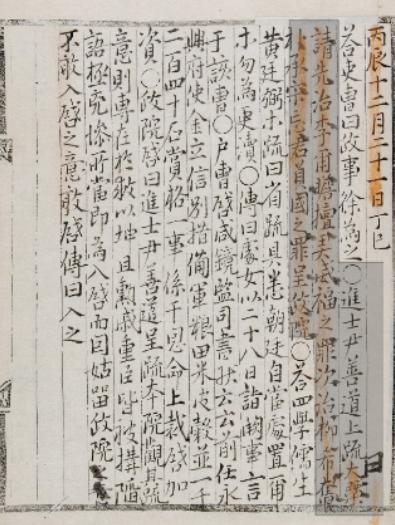 丙辰十二月二十一日丁巳
答吏曹曰政事徐爲之○進士尹善道上疏大槩
請先治李爾瞻擅美威福之罪次治柳希奮
朴承宗忘君負國之罪呈政院○答四學儒生
黃廷弼等疏曰省疏具悉朝廷自當處置爾
等勿爲更瀆○傳曰處女以二十八日詣闕事言
于該曹○戶曹啓咸鏡監司書狀云云前任永
興府使金立信別措備軍粮田米皮穀並一千
二百四十石賞格一事係干恩命上裁啓加
資○政院啓曰進士尹善道呈疏本院觀其疏
意則專在於 且勳戚重臣皆被搆陷
語極兇慘所當即爲入啓而因姑留政院之
不敢入啓之意敢啓傳曰入之